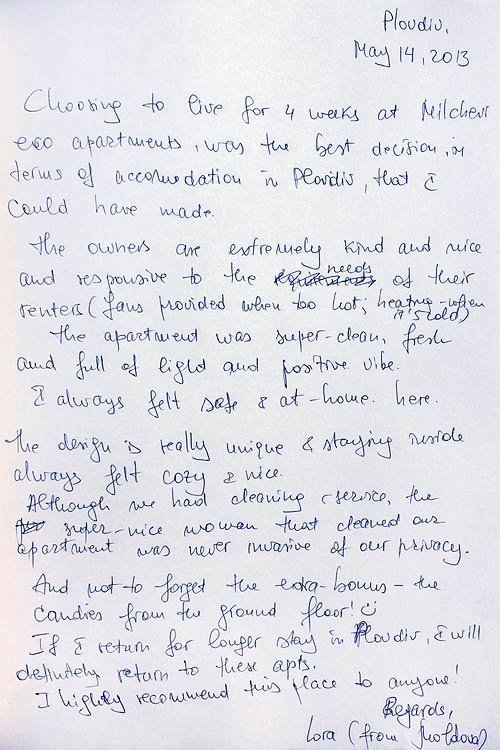 Plovdiv,
May 14, 2013
Choosing to live for 4 weeks at Milchev
eco apartments, was the best decision, in
terms of accomodation in Plovdiv, that I
could have made.
The owners are extremely kind and nice
and responsive to the needs of their
renters (fans provided when too hot; heating - when
it's cold)
The apartment was super-clean, fresh
and full of light and positive vibe.
I always felt safe & at-home. here.
The design is really unique & staying inside
always felt cozy & nice.
Although we had cleaning service, the
super-nice woman that cleaned our
apartment was never invasive of our privacy.
And not to forget the extra-bonus - the
candies from the ground floor! :)
If I return for longer stay in Plovdiv, I will
definitely return to these apts.
I highly recommend this place to anyone!
Regards,
Lora (from Moldova)